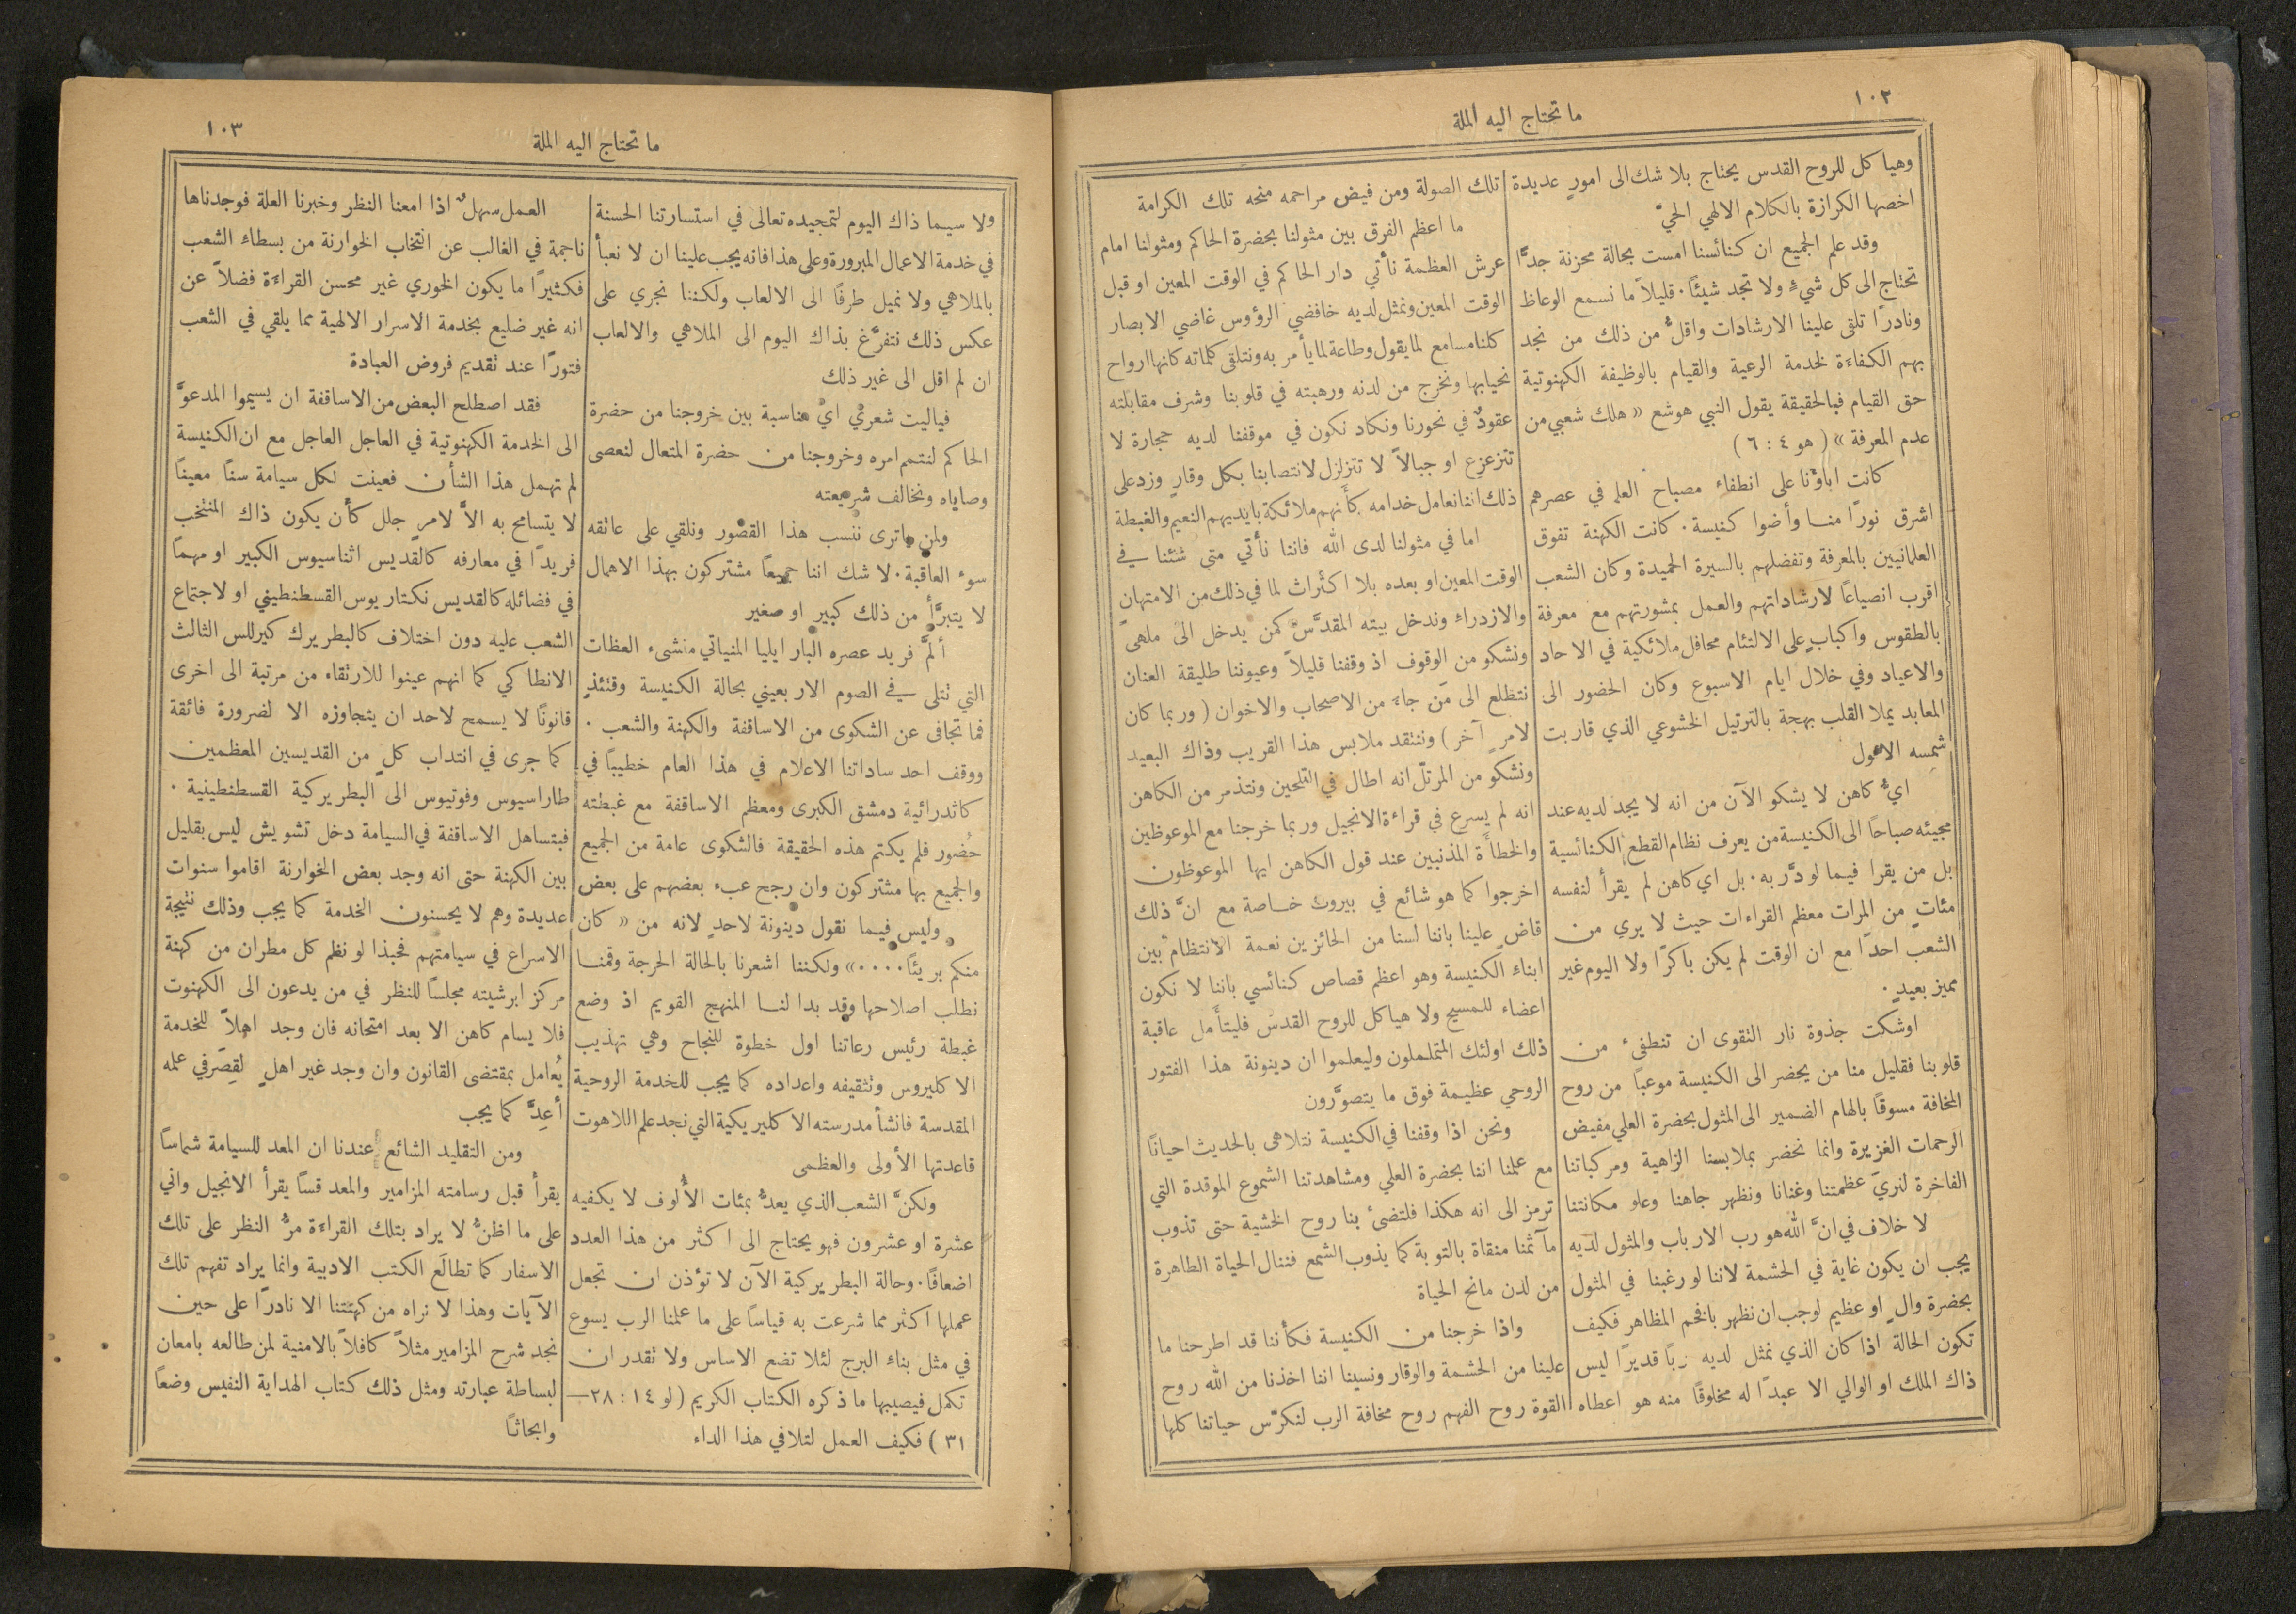 ١٠٢
ما تحتاج اليه الملة
وهياكل للروح القدس يحتاج بلا شك الى امورٍ عديدة
اخصها الكرازة بالكلام الالهي الحيّ
وقد علم الجميع ان كنائسنا امست بحالة محزنة جدًّا
تحتاج الى كل شيءٍ ولا تجد شيئًا. قليلاً ما نسمع الوعاظ
ونادرًا تلقى علينا الارشادات واقلُّ من ذلك من نجد
بهم الكفاءة لخدمة الرعية والقيام بالوظيفة الكهنوتية
حق القيام فبالحقيقة يقول النبي هوشع « هلك شعبي من
عدم المعرفة » ( هو ٤ : ٦ )
كانت اباؤنا على انطفاء مصباح العلم في عصرهم
اشرق نورًا منا وأضوا كنيسة. كانت الكهنة تفوق
العلمانيين بالمعرفة وتفضلهم بالسيرة الحميدة وكان الشعب
اقرب انصياعًا لارشاداتهم والعمل بمشورتهم مع معرفة
بالطقوس واكبابٍ على الالتئام محافل ملائكية في الاحاد
والاعياد وفي خلال ايام الاسبوع وكان الحضور الى
المعابد يملا القلب بهجة بالترتيل الخشوعي الذي قاربت
شمسه الافول
ايُّ كاهن لا يشكو الآن من انه لا يجد لديه عند
مجيئه صباحًا الى الكنيسة من يعرف نظام القطع الكنائسية
بل من يقرا فيما لو دَّر به. بل اي كاهن لم يقرأ لنفسه
مئاتٍ من المرات معظم القراءات حيث لا يرى من
الشعب احدًا مع ان الوقت لم يكن باكرًا ولا اليوم غير
مميز بعيدٍ.
اوشكت جذوة نار التقوى ان تنطفئَ من
قلوبنا فقليل منا من يحضر الى الكنيسة موعبًا من روح
المخافة مسوقًا بالهام الضمير الى المثول بحضرة العلي مفيض
الرحمات الغزيرة وانما نحضر بملابسنا الزاهية ومركباتنا
الفاخرة لنري عظمتنا وغنانا ونظهر جاهنا وعلو مكانتنا
لا خلاف في انَّ الله هو رب الارباب والمثول لديه
يجب ان يكون غاية في الحشمة لاننا لو رغبنا في المثول
بحضرة والٍ او عظيم لوجب ان نظهر بافخم المظاهر فكيف
تكون الحالة اذا كان الذي نمثل لديه ربًا قديرًا ليس
ذاك الملك او الوالي الا عبدًا له مخلوقًا منه هو اعطاه
تلك الصولة ومن فيض مراحمه منحه تلك الكرامة
ما اعظم الفرق بين مثولنا بحضرة الحاكم ومثولنا امام
عرش العظمة نأتي دار الحاكم في الوقت المعين او قبل
الوقت المعين ونمثل لديه خافضي الرؤوس غاضي الابصار
كلنا مسامع لما يقول وطاعة لما يأمر به ونتلقى كلماته كانها ارواح
نحيا بها ونخرج من لدنه ورهبته في قلوبنا وشرف مقابلته
عقودٌ في نحورنا ونكاد نكون في موقفنا لديه حجارة لا
تتزعزع او جبالاً لا تتزلزل لانتصابنا بكل وقارٍ وزد على
ذلك اننا نعامل خدامه كأنهم ملائكة بايديهم النعيم والغبطة
اما في مثولنا لدى الله فاننا نأتي متى شئنا في
الوقت المعين او بعده بلا اكتراث لما في ذلك من الامتهان
والازدراء وندخل بيته المقدَّس كمن يدخل الى ملهى
ونشكو من الوقوف اذ وقفنا قليلاً وعيوننا طليقة العنان
نتطلع الى مَن جاء من الاصحاب والاخوان ( وربما كان
لامرٍ آخر ) وننتقد ملابس هذا القريب وذاك البعيد
ونشكو من المرتّل انه اطال في التلحين ونتذمر من الكاهن
انه لم يسرع في قراءة الانجيل وربما خرجنا مع الموعوظين
والخطأة المذنبين عند قول الكاهن ايها الموعوظون
اخرجوا كما هو شائع في بيروت خاصة مع انَّ ذلك
قاضٍ علينا باننا لسنا من الحائزين نعمة الانتظام بين
ابناء الكنيسة وهو اعظم قصاص كنائسي باننا لا نكون
اعضاء للمسيح ولا هياكل للروح القدس فليتأَمل عاقبة
ذلك اولئك المتململون وليعلموا ان دينونة هذا الفتور
الروحي عظيمة فوق ما يتصوَّرون
ونحن اذا وقفنا في الكنيسة نتلاهى بالحديث احيانًا
مع علمنا اننا بحضرة العلي ومشاهدتنا الشموع الموقدة التي
ترمز الى انه هكذا فلتضئ بنا روح الخشية حتى تذوب
مآثمنا منقاة بالتوبة كما يذوب الشمع فننال الحياة الطاهرة
من لدن مانح الحياة
واذا خرجنا من الكنيسة فكأننا قد اطرحنا ما
علينا من الحشمة والوقار ونسينا اننا اخذنا من الله روح
القوة روح الفهم روح مخافة الرب لنكرّس حياتنا كلها
ما تحتاج اليه الملة
١٠٣
ولا سيما ذاك اليوم لتمجيده تعالى في استسارتنا الحسنة
في خدمة الاعمال المبرورة وعلى هذا فانه يجب علينا ان لا نعبأ
بالملاهي ولا نميل طرفًا الى الالعاب ولكننا نجري على
عكس ذلك نتفرَّغ بذاك اليوم الى الملاهي والالعاب
ان لم اقل الى غير ذلك
فياليت شعري ايُّ مناسبة بين خروجنا من حضرة
الحاكم لنتمم امره وخروجنا من حضرة المتعال لنعصى
وصاياه ونخالف شريعته
ولمن ياترى ننسب هذا القصور ونلقي على عاتقه
سوء العاقبة. لا شك اننا جميعًا مشتركون بهذا الاهمال
لا يتبرَّأ من ذلك كبير او صغير
ألمَّ فريد عصره البار ايليا المنياتي منشىء العظات
التي تتلى في الصوم الاربعيني بحالة الكنيسة وقتئذٍ
فما تجافى عن الشكوى من الاساقفة والكهنة والشعب.
ووقف احد ساداتنا الاعلام في هذا العام خطيبًا في
كاثدرائية دمشق الكبرى ومعظم الاساقفة مع غبطته
حُضور فلم يكتم هذه الحقيقة فالشكوى عامة من الجميع
والجميع بها مشتركون وان رجح عبء بعضهم على بعض
وليس فيما نقول دينونة لاحدٍ لانه من « كان
منكم بريئًا .... » ولكننا اشعرنا بالحالة الحرجة وقمنا
نطلب اصلاحها وقد بدا لنا المنهج القويم اذ وضع
غبطة رئيس رعاتنا اول خطوة للنجاح وهي تهذيب
الاكليروس وتثقيفه واعداده كما يجب للخدمة الروحية
المقدسة فانشأ مدرسته الاكليريكية التي نجد علم اللاهوت
قاعدتها الأولى والعظمى
ولكنَّ الشعب الذي يعدُّ بمئات الأُلوف لا يكفيه
عشرة او عشرون فهو يحتاج الى اكثر من هذا العدد
اضعافًا. وحالة البطريركية الآن لا تؤذن ان تجعل
عملها اكثر مما شرعت به قياسًا على ما علمنا الرب يسوع
في مثل بناء البرج لئلا تضع الاساس ولا تقدر ان
تكمل فيصيبها ما ذكره الكتاب الكريم ( لو ١٤ : ٢٨—
٣١ ) فكيف العمل لتلافي هذا الداء
العمل سهلٌ اذا امعنا النظر وخبرنا العلة فوجدناها
ناجمة في الغالب عن انتخاب الخوارنة من بسطاء الشعب
فكثيرًا ما يكون الخوري غير محسن القراءة فضلاً عن
انه غير ضليع بخدمة الاسرار الالهية مما يلقي في الشعب
فتورًا عند تقديم فروض العبادة
فقد اصطلح البعض من الاساقفة ان يسيموا المدعوَّ
الى الخدمة الكهنوتية في العاجل العاجل مع ان الكنيسة
لم تهمل هذا الشأن فعينت لكل سيامة سنًا معينًا
لا يتسامح به الاَّ لامرٍ جلل كأن يكون ذاك المنتخب
فريدًا في معارفه كالقديس اثناسيوس الكبير او مهمًا
في فضائله كالقديس نكتاريوس القسطنطيني او لاجتماع
الشعب عليه دون اختلاف كالبطريرك كيرللس الثالث
الانطاكي كما انهم عينوا للارتقاء من مرتبة الى اخرى
قانونًا لا يسمح لاحد ان يتجاوزه الا لضرورة فائقة
كما جرى في انتداب كلٍ من القديسين المعظمين
طاراسيوس وفوتيوس الى البطريركية القسطنطينية.
فبتساهل الاساقفة في السيامة دخل تشويش ليس بقليل
بين الكهنة حتى انه وجد بعض الخوارنة اقاموا سنوات
عديدة وهم لا يحسنون الخدمة كما يجب وذلك نتيجة
الاسراع في سيامتهم فحبذا لو نظم كل مطران من كهنة
مركز ابرشيته مجلسًا للنظر في من يدعون الى الكهنوت
فلا يسام كاهن الا بعد امتحانه فان وجد اهلاً للخدمة
يُعامل بمقتضى القانون وان وجد غير اهلٍ لقِصَر في علمه
أُعِدَّ كما يجب
ومن التقليد الشائع عندنا ان المعد للسيامة شماسًا
يقرأ قبل رسامته المزامير والمعد قسًا يقرأ الانجيل واني
على ما اظنُّ لا يراد بتلك القراءة مرُّ النظر على تلك
الاسفار كما تطالَع الكتب الادبية وانما يراد تفهم تلك
الآيات وهذا لا نراه من كهنتنا الا نادرًا على حين
نجد شرح المزامير مثلاً كافلاً بالامنية لمن طالعه بامعان
لبساطة عبارته ومثل ذلك كتاب الهداية النفيس وضعًا
وابحاثًا